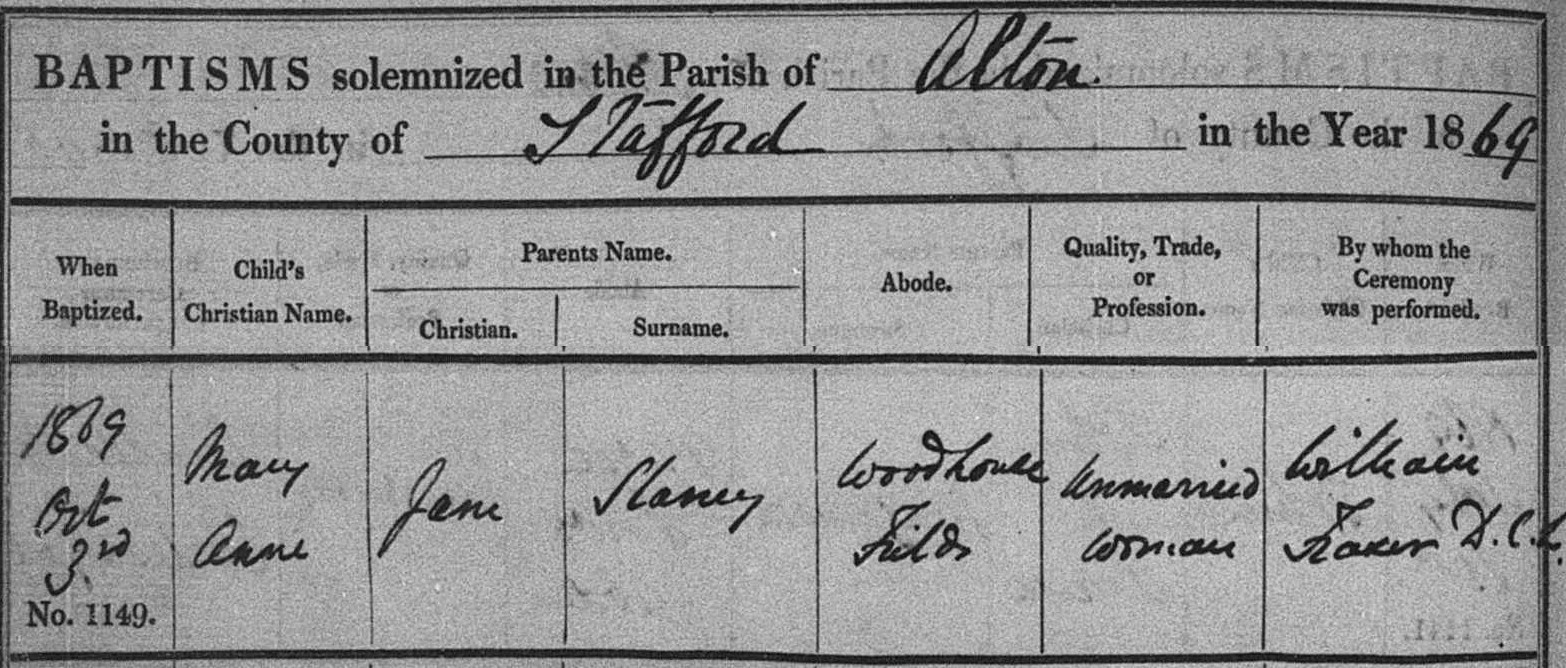 BAPTISMS solemnized in the Parish of Alton.
in the County of Stafford in the Year 1869
When Baptized.
Child's Christian Name.
Parents Name.
Christian.
Surname.
Abode.
Quality, Trade, or Profession.
By whom the Ceremony was performed.
1869
Oct
3rd
No. 1149.
Mary
Anne
Jane
Slaney
Woodhouse
Fields
Unmarried
Woman
William
Fraser D.C.L.